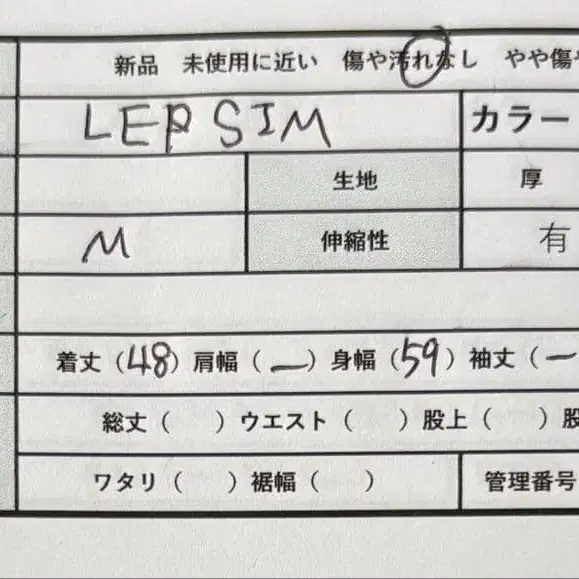 新品 未使用に近い 傷や汚れなし やや傷や
LEPSIM カラー
生地 厚
M 伸縮性 有
着丈(48)肩幅(—)身幅(59)袖丈(—
総丈( )ウエスト( )股上( )股
ワタリ( )裾幅( ) 管理番号